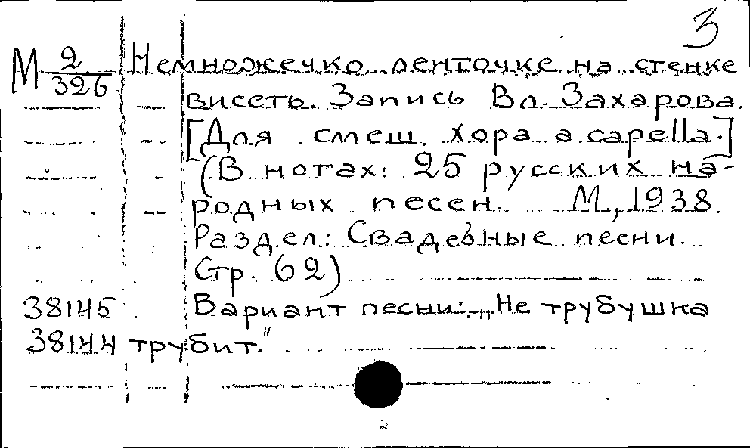 3
М 2/326 Немножечко ленточке на стенке
висеть. Запись Вл. Захарова.
[Для смеш. хора a capella.]
(В нотах: 25 русских на-
родных песен. М., 1938.
Раздел: Свадебные песни.
Стр. 62)
38145 Вариант песни: „Не трубушка
38144 трубит."
2